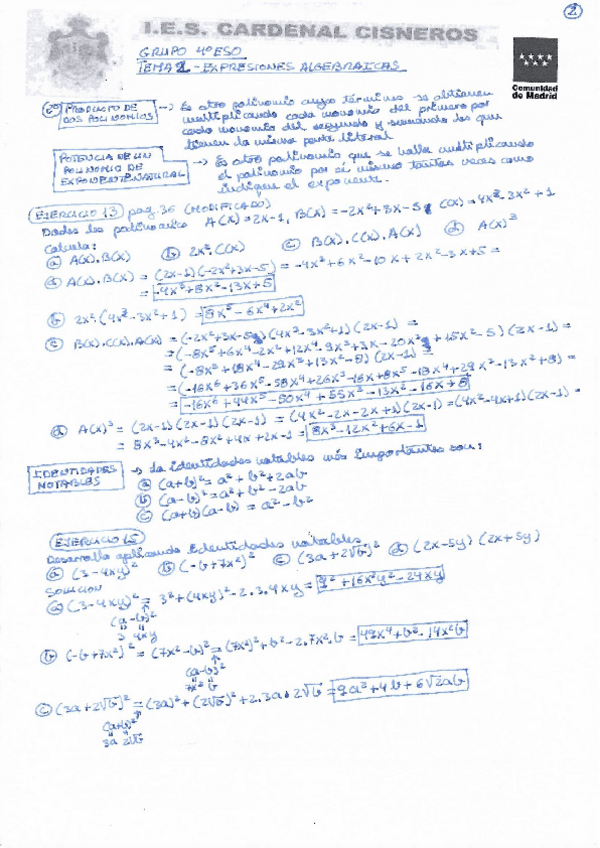 2
I.E.S. CARDENAL CISNEROS
GRUPO 4º ESO
TEMA 2 - EXPRESIONES ALGEBRAICAS
Comunidad
de Madrid
PRODUCTO DE DOS POLINOMIOS → Es otro polinomio cuyos términos se obtienen
multiplicando cada monomio del primero por
cada monomio del segundo y sumando los que
tienen la misma parte literal
POTENCIA DE UN POLINOMIO DE EXPONENTE NATURAL → Es otro polinomio que se halla multiplicando
el polinomio por sí mismo tantas veces como
indique el exponente.
EJERCICIO 13 pag. 36 (MODIFICADO)
Dados los polinomios A(x) = 2x-1, B(x) = -2x²+3x-5, C(x) = 4x³-3x²+1
Calcula:
a) A(x).B(x) b) 2x².C(x) c) B(x).C(x).A(x) d) A(x)³
a) A(x).B(x) = (2x-1)(-2x²+3x-5) = -4x³+6x²-10x+2x²-3x+5 =
= -4x³+8x²-13x+5
b) 2x².(4x³-3x²+1) = 8x⁵-6x⁴+2x²
c) B(x).C(x).A(x) = (-2x²+3x-5)(4x³-3x²+1)(2x-1) =
d) A(x)³ = (2x-1)(2x-1)(2x-1) = (4x²-2x-2x+1)(2x-1) = (4x²-4x+1)(2x-1) =
= 8x³-4x²-8x²+4x+2x-1 = 8x³-12x²+6x-1
IDENTIDADES NOTABLES → Las identidades notables más importantes son:
a) (a+b)² = a²+b²+2ab
b) (a-b)² = a²+b²-2ab
c) (a+b)(a-b) = a²-b²
EJERCICIO 15
Desarrolla aplicando Identidades notables.
a) (3-4xy)² b) (-b+7x²)² c) (3a+2√b)² d) (2x-5y)(2x+5y)
SOLUCION
a) (3-4xy)² = 3²+(4xy)²-2.3.4xy = 9²+16x²y²-24xy
(a-b)²
3 4xy
b) (-b+7x²)² = (7x²-b)² = (7x²)²+b²-2.7x².b = 49x⁴+b²-14x²b
(a-b)²
7x² b
c) (3a+2√b)² = (3a)²+(2√b)²+2.3a.2√b =
(a+b)²
3a 2√b